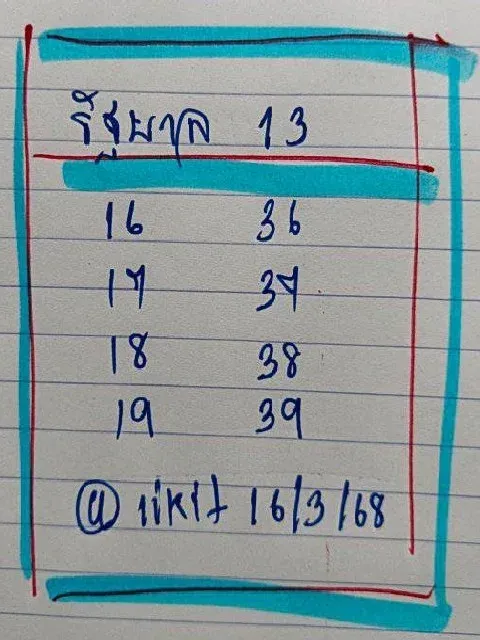 รัฐบาล 13
16 36
17 37
18 38
19 39
16/3/68